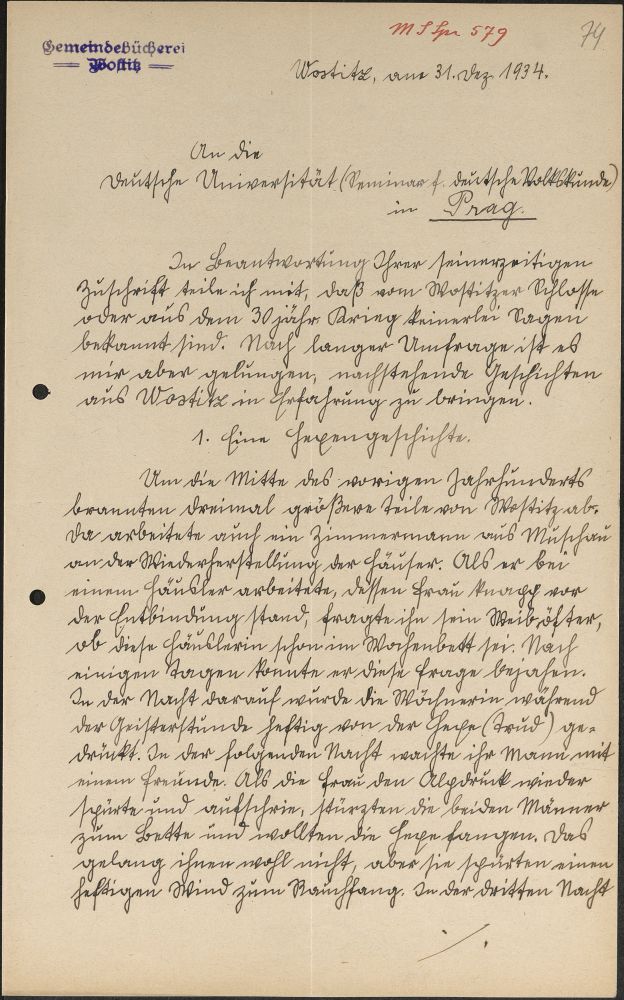 M S Spr 579
74
Gemeindebücherei
Wostitz
Wostitz, am 31. Dez. 1934.
An die
Deutsche Universität (Seminar f. deutsche Volkskunde)
in Prag.
In Beantwortung Ihrer seinerzeitigen
Zuschrift teile ich mit, daß vom Wostitzer Schlosse
oder aus dem 30 jähr. Krieg keinerlei Sagen
bekannt sind. Nach langer Umfrage ist es
mir aber gelungen, nachstehende Geschichten
aus Wostitz in Erfahrung zu bringen.
1. Eine Hexengeschichte.
Um die Mitte des vorigen Jahrhunderts
brannten dreimal größere Teile von Wostitz ab.
Da arbeitete auch ein Zimmermann aus Muschau
an der Wiederherstellung der Häuser. Als er bei
einem Häusler arbeitete, dessen Frau knapp vor
der Entbindung stand, fragte ihn sein Weib öfter,
ob diese Häuslerin schon im Wochenbett sei. Nach
einigen Tagen konnte er diese Frage bejahen.
In der Nacht darauf wurde die Wöchnerin während
der Geisterstunde heftig von der Hexe (Trud) ge-
drückt. In der folgenden Nacht wachte ihr Mann mit
einem Freunde. Als die Frau den Alpdruck wieder
spürte und aufschrie, stürzten die beiden Männer
zum Bette und wollten die Hexe fangen. Das
gelang ihnen wohl nicht, aber sie spürten einen
heftigen Wind zum Rauchfang. In der dritten Nacht
./.